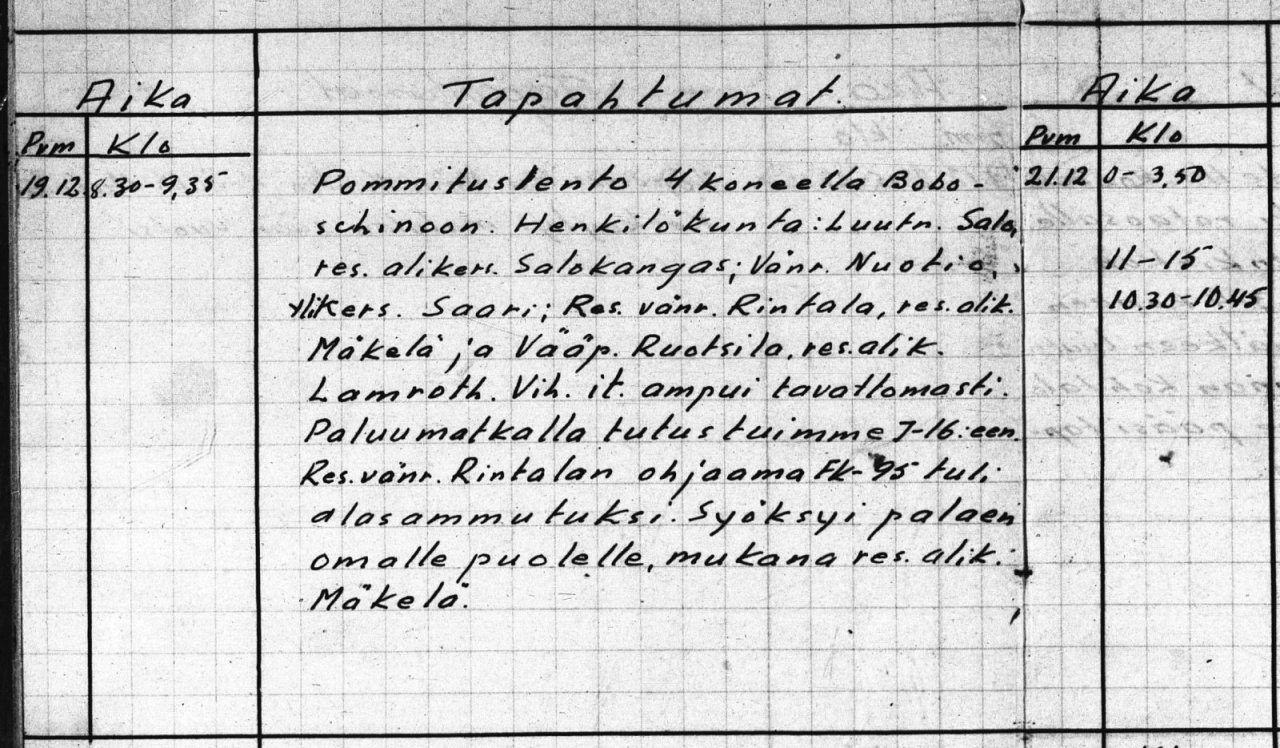 Aika
Tapahtumat.
Pvm Klo
19.12 8.30-9,35
Pommituslento 4 koneella Bobo-
schinoon. Henkilökunta: Luutn. Salo,
res. alikers. Salokangas; Vänr. Nuotio,
ylikers. Saari; Res. vänr. Rintala, res. alik.
Mäkelä ja Vääp. Ruotsila, res. alik.
Lamroth. Vih. it. ampui tavattomasti.
Paluumatkalla tutustuimme J-16:een.
Res. vänr. Rintalan ohjaama FK-95 tuli
alasammutuksi. Syöksyi palaen
omalle puolelle, mukana res. alik.
Mäkelä.
Aika
Pvm Klo
21.12 0-3,50
11-15
10.30-10.45